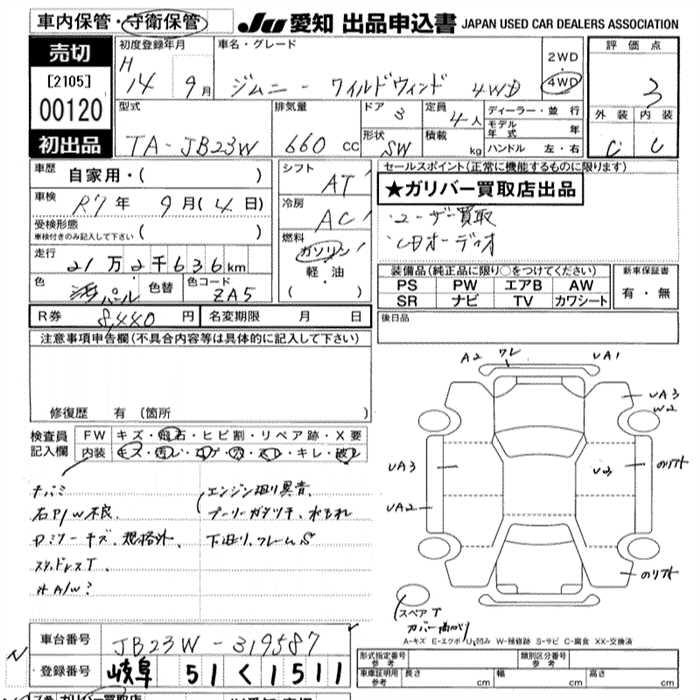 車内保管・守衛保管
JU 愛知 出品申込書 JAPAN USED CAR DEALERS ASSOCIATION
売切
[2105]
00120
初出品
初度登録年月
H 14 9月
車名・グレード
ジムニー ワイルドウインド 4WD
2WD
4WD
評価点
3
外装 内装
C C
型式
TA-JB23W
排気量
660 cc
ドア
3
形状
SW
定員
4人
積載
kg
ディーラー・並行
モデル年式 年
ハンドル 左・右
車歴 自家用・( )
車検 R7年 9月(4日)
受検形態
車検付きのみ記入して下さい ( )
走行 21万2千636km
色 パール 色替 色コード ZA5
シフト
AT
冷房
AC
燃料
ガソリン
軽油
( )
セールスポイント(正常に機能するものに限ります)
★ガリバー買取店出品
・ユーザー買取
・CDオーディオ
装備品(純正品に限り○をつけてください)
PS PW エアB AW
SR ナビ TV カワシート
新車保証書
有・無
R券 8,440円 名変期限 月 日
後日品
注意事項申告欄(不具合内容等は具体的に記入して下さい)
修復歴 有(箇所 )
検査員記入欄
FW キズ・飛石・ヒビ割・リペア跡・X要
内装 キズ・汚レ・コゲ・穴・スレ・キレ・破レ
右P/W不良
エンジン廻り異音
プーリーガタツキ、水もれ
下廻り、フレームS
A2 ワレ UA1
UA3
W2
UA3 U3 のリフト
UA2
のリフト
スペアT
カバー曲がり
A-キズ E-エクボ U-凹み W-補修跡 S-サビ C-腐食 XX-交換済
車台番号 JB23W-319587
登録番号 岐阜 51 く 1511
形式指定番号 参考
類別区分番号 参考
車庫証明用 参考 長さ cm 幅 cm 高さ cm
ガリバー買取店